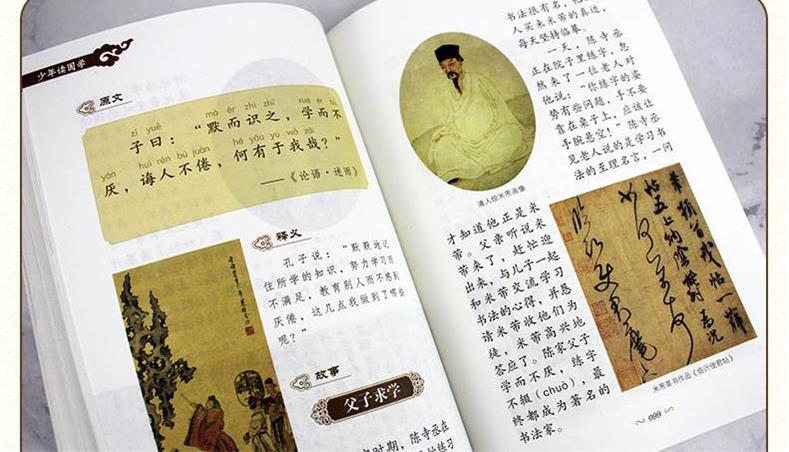 少年读国学
原文
zǐ yuē mò ér shí zhī xué ér bú
子曰：“默而识之，学而不
yàn huì rén bú juàn hé yǒu yú wǒ zāi
厌，诲人不倦，何有于我哉？”
——《论语·述而》
释义
孔子说：“默默地记
住所学的知识，努力学习而
不满足，教育别人而不感到
厌倦，这几点我做到了哪些
呢？”
故事
父子求学
时期，陈寺丞
书法很有名，
人买来米芾的真迹，
每天坚持临摹。
一天，陈寺丞
正在院子里练字，忽
然来了一位老人对
他说：“你练字的姿
势有些问题，手不要
靠在桌子上，应该让
手腕悬空！”陈寺丞
见老人说的是学习书
法的至理名言，一问
清人绘米芾画像
才知道他正是米
芾。父亲听说米
芾来了，赶忙迎
出来，与儿子一起
和米芾交流学习
书法的心得，并恳
请米芾收他们为
徒，米芾高兴地
答应了。陈家父子
学而不厌，练字
不辍（chuò），最
终都成为著名的
书法家。
米芾草书作品《临沂使君帖》
099